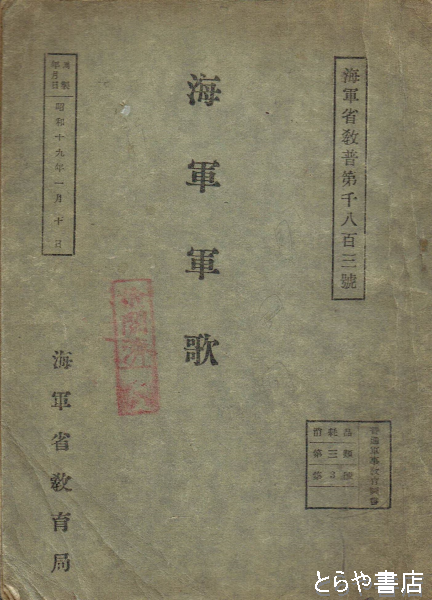 海軍省教普第千八百三號
海軍軍歌
昭和十九年一月十日
年月日
海軍省教育局
とらや書店